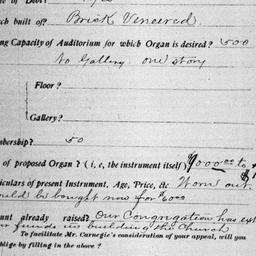 rch built of? Brick Veneered.
ng Capacity of Auditorium for which Organ is desired? 500
No Gallery. one story
Floor?
Gallery?
mbership? 50
of proposed Organ? (i, e, the instrument itself) $1000.00 to $1
iculars of present Instrument, Age, Price, &c Worn out.
ould be bought now for $60.00
unt already raised? Our Congregation has ext
r funds in building this Church
To facilitate Mr. Carnegie's consideration of your appeal, will you
oblige by filling in the above?